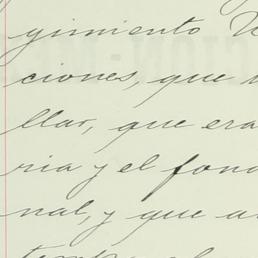 gimiento
ciones, que
llar, que era
ria y el fond
nal, y que a